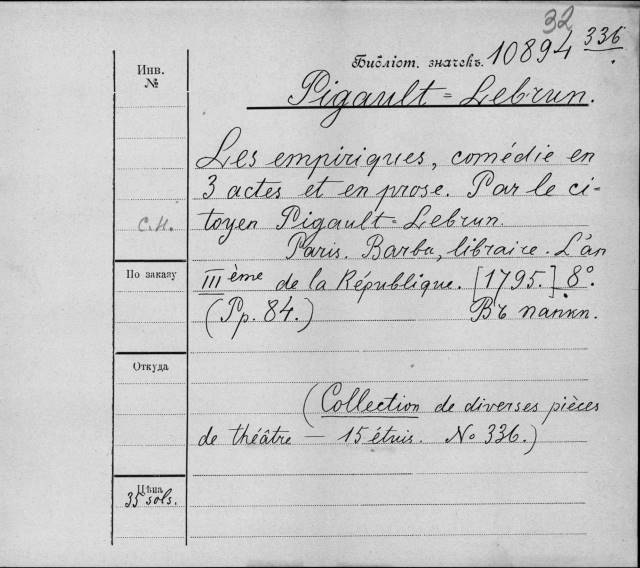 32
Библіот. значекъ. 10894 336
Инв.
№
Pigault-Lebrun.
Les empiriques, comédie en
3 actes et en prose. Par le ci-
toyen Pigault-Lebrun.
С.Н.
Paris. Barba, libraire. L'an
По заказу
IIIème de la République. [1795.] 8º.
(Pp. 84.) Въ папкѣ.
Откуда
(Collection de diverses pièces
de théâtre — 15 étuis. No 336.)
Цѣна
35 sols.